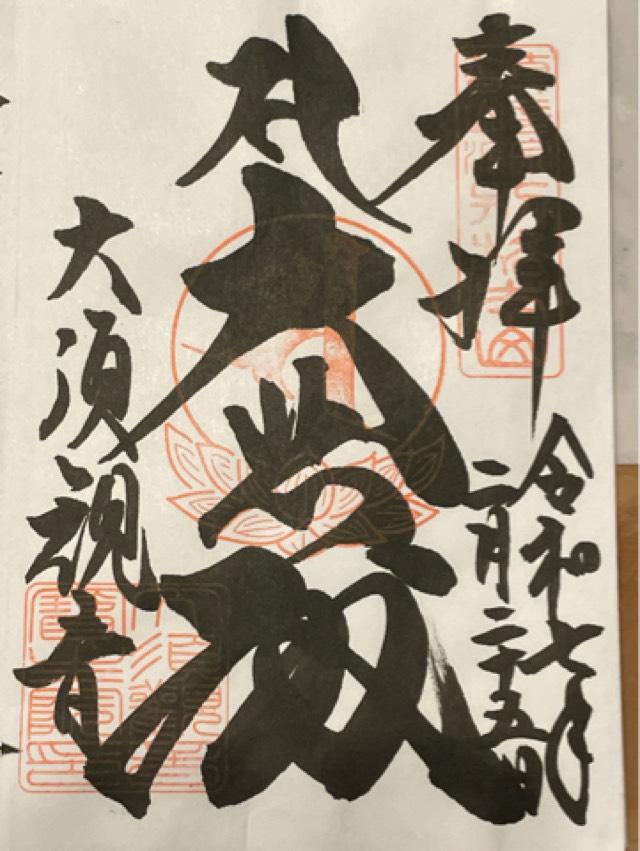 奉拝
令和七年
二月二十五日
大悲殿
大須観音